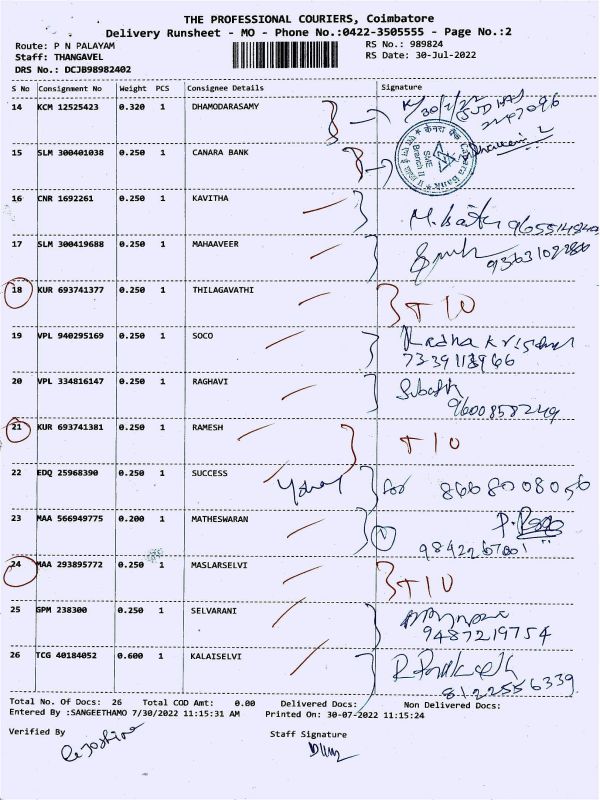 THE PROFESSIONAL COURIERS, Coimbatore
Delivery Runsheet - MO - Phone No.:0422-3505555 - Page No.:2
Route: P N PALAYAM RS No.: 989824
Staff: THANGAVEL RS Date: 30-Jul-2022
DRS No.: DCJB98982402
S No Consignment No Weight PCS Consignee Details Signature
14 KCM 12525423 0.320 1 DHAMODARASAMY
15 SLM 300401038 0.250 1 CANARA BANK
Canara Bank
SME
Branch II
16 CNR 1692261 0.250 1 KAVITHA
17 SLM 300419688 0.250 1 MAHAAVEER
18 KUR 693741377 0.250 1 THILAGAVATHI T 10
19 VPL 940295169 0.250 1 SOCO
20 VPL 334816147 0.250 1 RAGHAVI
9600858249
21 KUR 693741381 0.250 1 RAMESH T 10
22 EDQ 25968390 0.250 1 SUCCESS for 8668008056
23 MAA 566949775 0.200 1 MATHESWARAN
24 MAA 293895772 0.250 1 MASLARSELVI T 10
25 GPM 238300 0.250 1 SELVARANI
9487219754
26 TCG 40184052 0.600 1 KALAISELVI
8122556339
Total No. Of Docs: 26 Total COD Amt: 0.00 Delivered Docs: Non Delivered Docs:
Entered By :SANGEETHAMO 7/30/2022 11:15:31 AM Printed On: 30-07-2022 11:15:24
Verified By Staff Signature